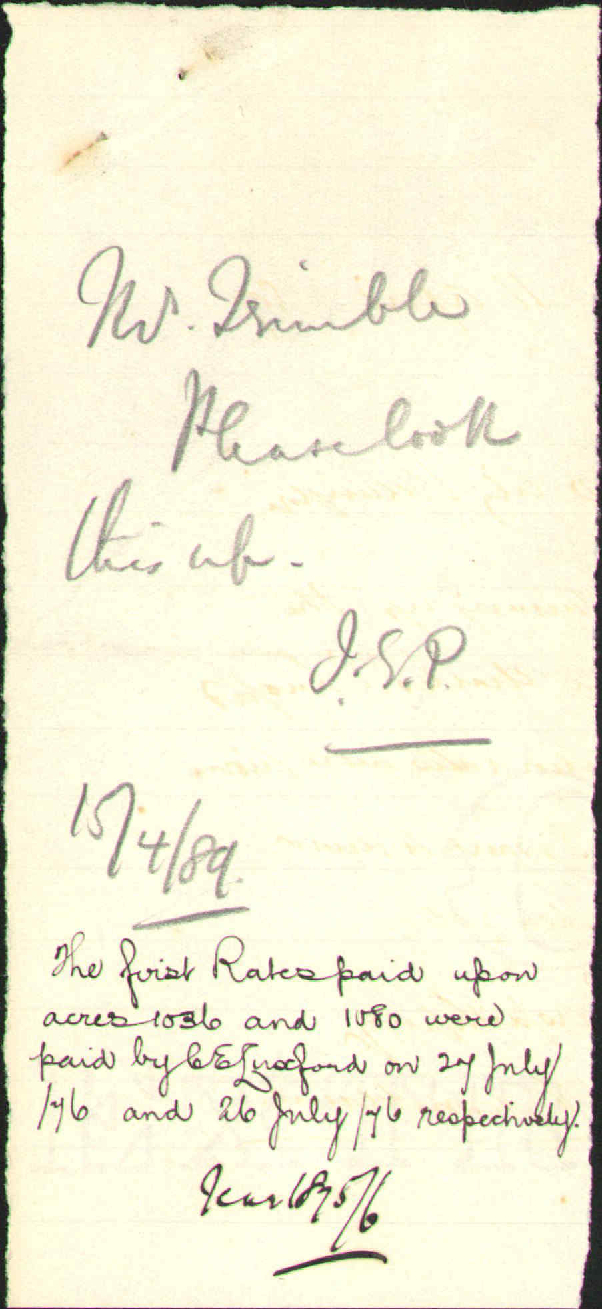 Mr. Trimble
Please look
this up.
J.G.P.
15/4/89.
The first Rates paid upon
acres 1036 and 1080 were
paid by C E Luxford on 27 July
/76 and 26 July /76 respectively.
Year 1875/6